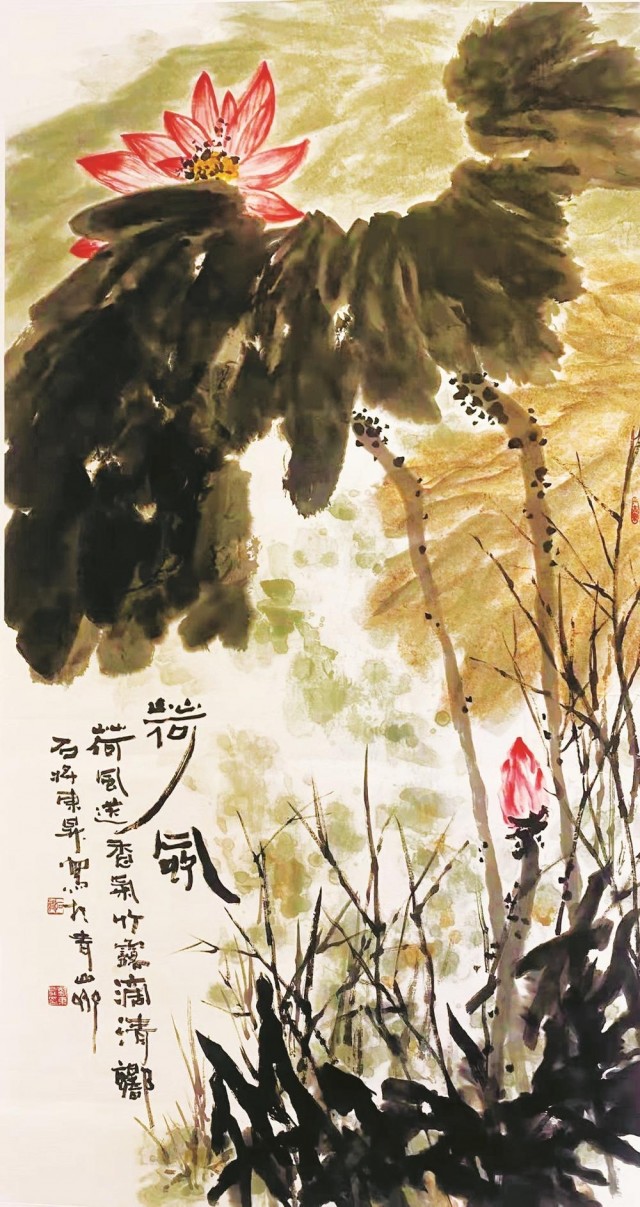 荷風
荷風送香氣竹露滴清響
石將東昇寫於青山